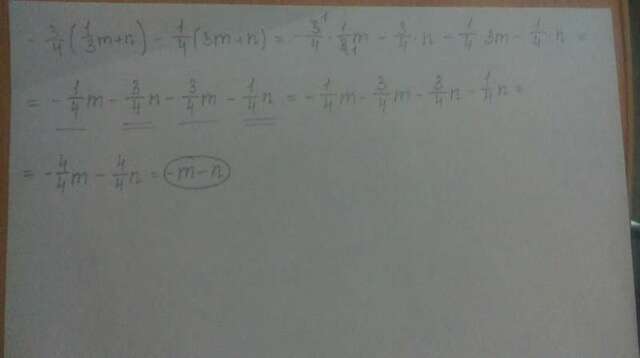 - 3/4 (1/3 m+n) - 1/4 (3m+n) = - 3/4 · 1/3 m - 3/4 · n - 1/4 · 3m - 1/4 · n =
= - 1/4 m - 3/4 n - 3/4 m - 1/4 n = - 1/4 m - 3/4 m - 3/4 n - 1/4 n =
= - 4/4 m - 4/4 n = -m-n